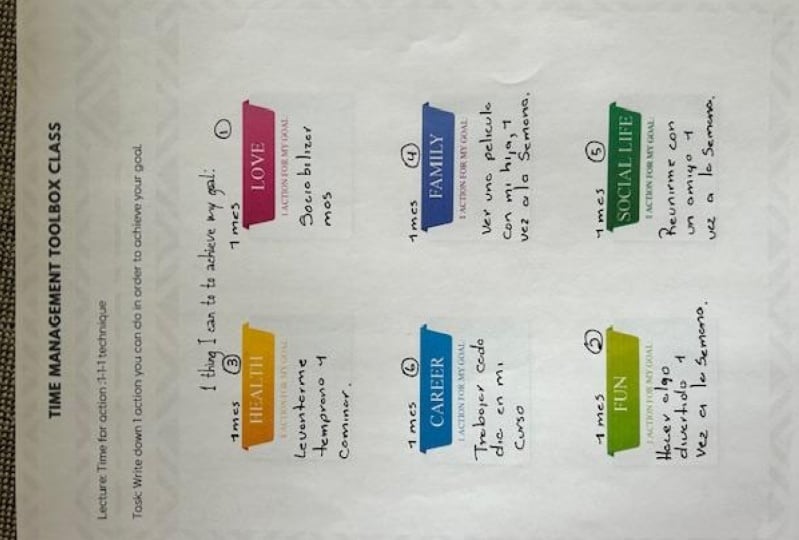 TIME MANAGEMENT TOOLBOX CLASS
Lecture: Time for action :1-1-1 technique
Task: Write down 1 action you can do in order to achieve your goal.
1 thing I can to to achieve my goal:
1 mes 3
HEALTH
1 ACTION FOR MY GOAL
Levantarme
temprano y
commer.
1 mes 1
LOVE
1 ACTION FOR MY GOAL
Sociobilizar
mas
1 mes 6
CAREER
1 ACTION FOR MY GOAL
Trabajar cada
dia en mi
curso
1 mes 4
FAMILY
1 ACTION FOR MY GOAL
Ver una pelicula
con mi hija, 1
vez a la Semana.
1 mes 2
FUN
1 ACTION FOR MY GOAL
Hacer algo
divertido 1
vez a la Semana.
1 mes 5
SOCIAL LIFE
1 ACTION FOR MY GOAL
Reunirme con
un amigo 1
vez a la Semana.